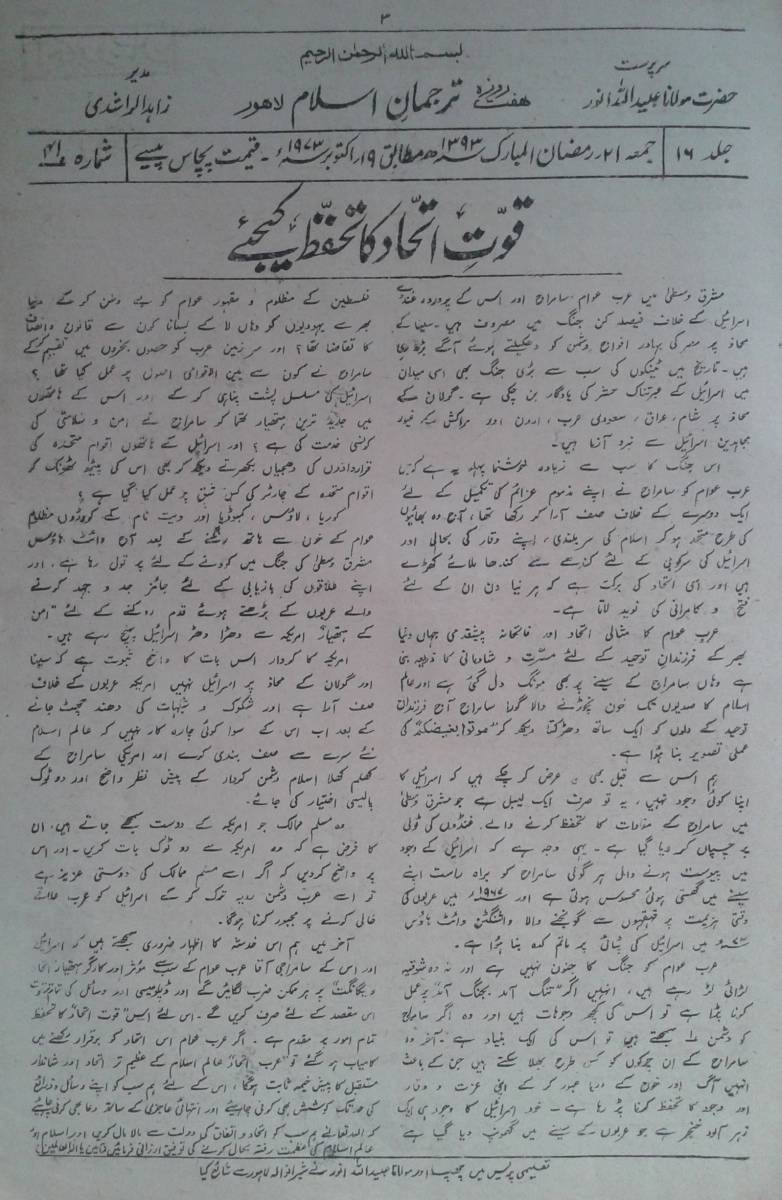 ۳
بسم اللہ الرحمٰن الرحیم
سرپرست
حضرت مولانا عبید اللہ انور
ہفت روزہ ترجمانِ اسلام لاہور
مدیر
زاہد الراشدی
جلد ۱۶
جمعہ ۲۱ رمضان المبارک ۱۳۹۳ھ مطابق ۱۹ اکتوبر ۱۹۷۳ء - قیمت پچاس پیسے
شمارہ ۴۱
قوّتِ اتّحاد کا تحفّظ کیجئے
مشرق وسطیٰ میں عرب عوام سامراج اور اس کے پروردہ غنڈے
اسرائیل کے خلاف فیصلہ کن جنگ میں مصروف ہیں۔ سینا کے
محاذ پر مصر کی بہادر افواج دشمن کو دھکیلتے ہوئے آگے بڑھ رہی
ہیں۔ تاریخ میں ٹینکوں کی سب سے بڑی جنگ بھی اسی میدان
میں اسرائیل کے عبرتناک حشر کی یادگار بن چکی ہے۔ گولان کے
محاذ پر شام، عراق، سعودی عرب، اردن اور مراکش کے غیور
مجاہدین اسرائیل سے نبرد آزما ہیں۔
اس جنگ کا سب سے زیادہ خوشنما پہلو یہ ہے کہ جن
عرب عوام کو سامراج نے اپنے مذموم عزائم کی تکمیل کے لئے
ایک دوسرے کے خلاف صف آرا کر رکھا تھا، آج وہ بھائیوں
کی طرح متحد ہو کر اسلام کی سربلندی، اپنے وقار کی بحالی اور
اسرائیل کی سرکوبی کے لئے کندھے سے کندھا ملائے کھڑے
ہیں اور اسی اتحاد کی برکت ہے کہ ہر نیا دن ان کے لئے
فتح و کامرانی کی نوید لاتا ہے۔
عرب عوام کا مثالی اتحاد اور فاتحانہ پیشقدمی جہاں دنیا
بھر کے فرزندانِ توحید کے لئے مسرّت و شادمانی کا ذریعہ بنی
ہے وہاں سامراج کے سینے پر بھی مونگ دل گئی ہے اور عالم
اسلام کا صدیوں تک خون نچوڑنے والا گورا سامراج آج فرزندان
توحید کے دلوں کو ایک ساتھ دھڑکتا دیکھ کر "موتوا بغیضکم" کی
عملی تصویر بنا ہوا ہے۔
ہم اس سے قبل بھی یہ عرض کر چکے ہیں کہ اسرائیل کا
اپنا کوئی وجود نہیں، یہ تو صرف ایک لیبل ہے جو مشرق وسطیٰ
میں سامراج کے مفادات کا تحفظ کرنے والے غنڈوں کی ٹولی
پر چسپاں کر دیا گیا ہے۔ یہی وجہ ہے کہ اسرائیل کے وجود
میں پیوست ہونے والی ہر گولی سامراج کو براہ راست اپنے
سینے میں گھستی ہوئی محسوس ہوتی ہے اور ۱۹۶۷ء میں عربوں کی
وقتی ہزیمت پر قہقہوں سے گونجنے والا واشنگٹن وائٹ ہاؤس
۷۳ء میں اسرائیل کی پٹائی پر ماتم کدہ بنا ہوا ہے۔
عرب عوام کو جنگ کا جنون نہیں ہے اور نہ وہ شوقیہ
لڑائی لڑ رہے ہیں، انہیں اگر "تنگ آمد بجنگ آمد" پر عمل
کرنا پڑا ہے تو اس کی کچھ وجوہات ہیں اور وہ اگر سامراج
کو دشمن ۱ سمجھتے ہیں تو اس کی ایک بنیاد ہے۔ آخر وہ
سامراج کے ان چرکوں کو کس طرح بھلا سکتے ہیں جن کے باعث
انہیں آگ اور خون کے دریا عبور کر کے اپنی عزت و وقار
اور وجود کا تحفظ کرنا پڑ رہا ہے۔ خود اسرائیل کا وجود ہی ایک
زہر آلود خنجر ہے جو عربوں کے سینے میں گھونپ دیا گیا ہے
فلسطین کے مظلوم و مقہور عوام کو بے وطن کر کے دنیا
بھر سے یہودیوں کو وہاں لا کے بسانا کون سے قانون و انصاف
کا تقاضا تھا؟ اور سرزمین عرب کو حصوں بخروں میں تقسیم کر کے
سامراج نے کون سے بین الاقوامی اصول پر عمل کیا تھا؟
اسرائیل کی مسلسل پشت پناہی کر کے اور اس کے ہاتھوں
میں جدید ترین ہتھیار تھما کر سامراج نے امن و سلامتی کی
کونسی خدمت کی ہے؟ اور اسرائیل کے ہاتھوں اقوام متحدہ کی
قراردادوں کی دھجیاں بکھرتے دیکھ کر بھی اس کی پیٹھ ٹھونک کر
اقوام متحدہ کے چارٹر کی کس شق پر عمل کیا گیا ہے؟
کوریا، لاؤس، کمبوڈیا اور ویت نام کے کروڑوں مظلوم
عوام کے خون سے ہاتھ رنگنے کے بعد آج وائٹ ہاؤس
مشرق وسطیٰ کی جنگ میں کودنے کے لئے پر تول رہا ہے، اور
اپنے علاقوں کی بازیابی کے لئے جائز جد و جہد کرنے
والے عربوں کے بڑھتے ہوئے قدم روکنے کے لئے "امن
کے ہتھیار" امریکہ سے دھڑا دھڑ اسرائیل پہنچ رہے ہیں۔
امریکہ کا کردار اس بات کا واضح ثبوت ہے کہ سینا
اور گولان کے محاذ پر اسرائیل نہیں امریکہ عربوں کے خلاف
صف آرا ہے اور شکوک و شبہات کی دھند چھٹ جانے
کے بعد اب اس کے سوا کوئی چارہ کار نہیں کہ عالم اسلام
نئے سرے سے صف بندی کرے اور امریکی سامراج کے
کھلم کھلا اسلام دشمن کردار کے پیش نظر واضح اور دو ٹوک
پالیسی اختیار کی جائے۔
وہ مسلم ممالک جو امریکہ کے دوست سمجھے جاتے ہیں، ان
کا فرض ہے کہ وہ امریکہ سے دو ٹوک بات کریں۔ اور اس
پر واضح کر دیں کہ اگر اسے مسلم ممالک کی دوستی عزیز ہے
تو اسے عرب دشمن رویہ ترک کر کے اسرائیل کو عرب علاقے
خالی کرنے پر مجبور کرنا ہوگا۔
آخر میں ہم اس خدشہ کا اظہار ضروری سمجھتے ہیں کہ اسرائیل
اور اس کے سامراجی آقا عرب عوام کے سب سے مؤثر اور کارگر ہتھیار "اتحاد
و یگانگت" پر ہر ممکن ضرب لگائیں گے اور ڈپلومیسی اور وسائل کی تمام تر قوت
اس مقصد کے لئے صرف کریں گے۔ اس لئے اس "قوت اتحاد" کا تحفظ
تمام امور پر مقدم ہے۔ اگر عرب عوام اس اتحاد کو برقرار رکھنے میں
کامیاب ہو گئے تو "عرب اتحاد" عالم اسلام کے عظیم تر اتحاد اور شاندار
مستقبل کا پیش خیمہ ثابت ہوگا، اس کے لئے ہم سب کو اپنے رسائل و ذرائع
کی حد تک کوشش بھی کرنی چاہیئے اور انتہائی عاجزی کے ساتھ دعا بھی کرنی چاہیئے
کہ اللہ تعالیٰ ہم سب کو اتحاد و اتفاق کی دولت سے مالا مال کریں اور اسلام اور
عالم اسلام کی عظمت رفتہ بحال کرنے کی توفیق ارزانی فرمائیں (آمین یا الٰہ العالمین)
تعلیمی پریس میں چھپا اور مولانا عبید اللہ انور نے شیرانوالہ لاہور سے شائع کیا